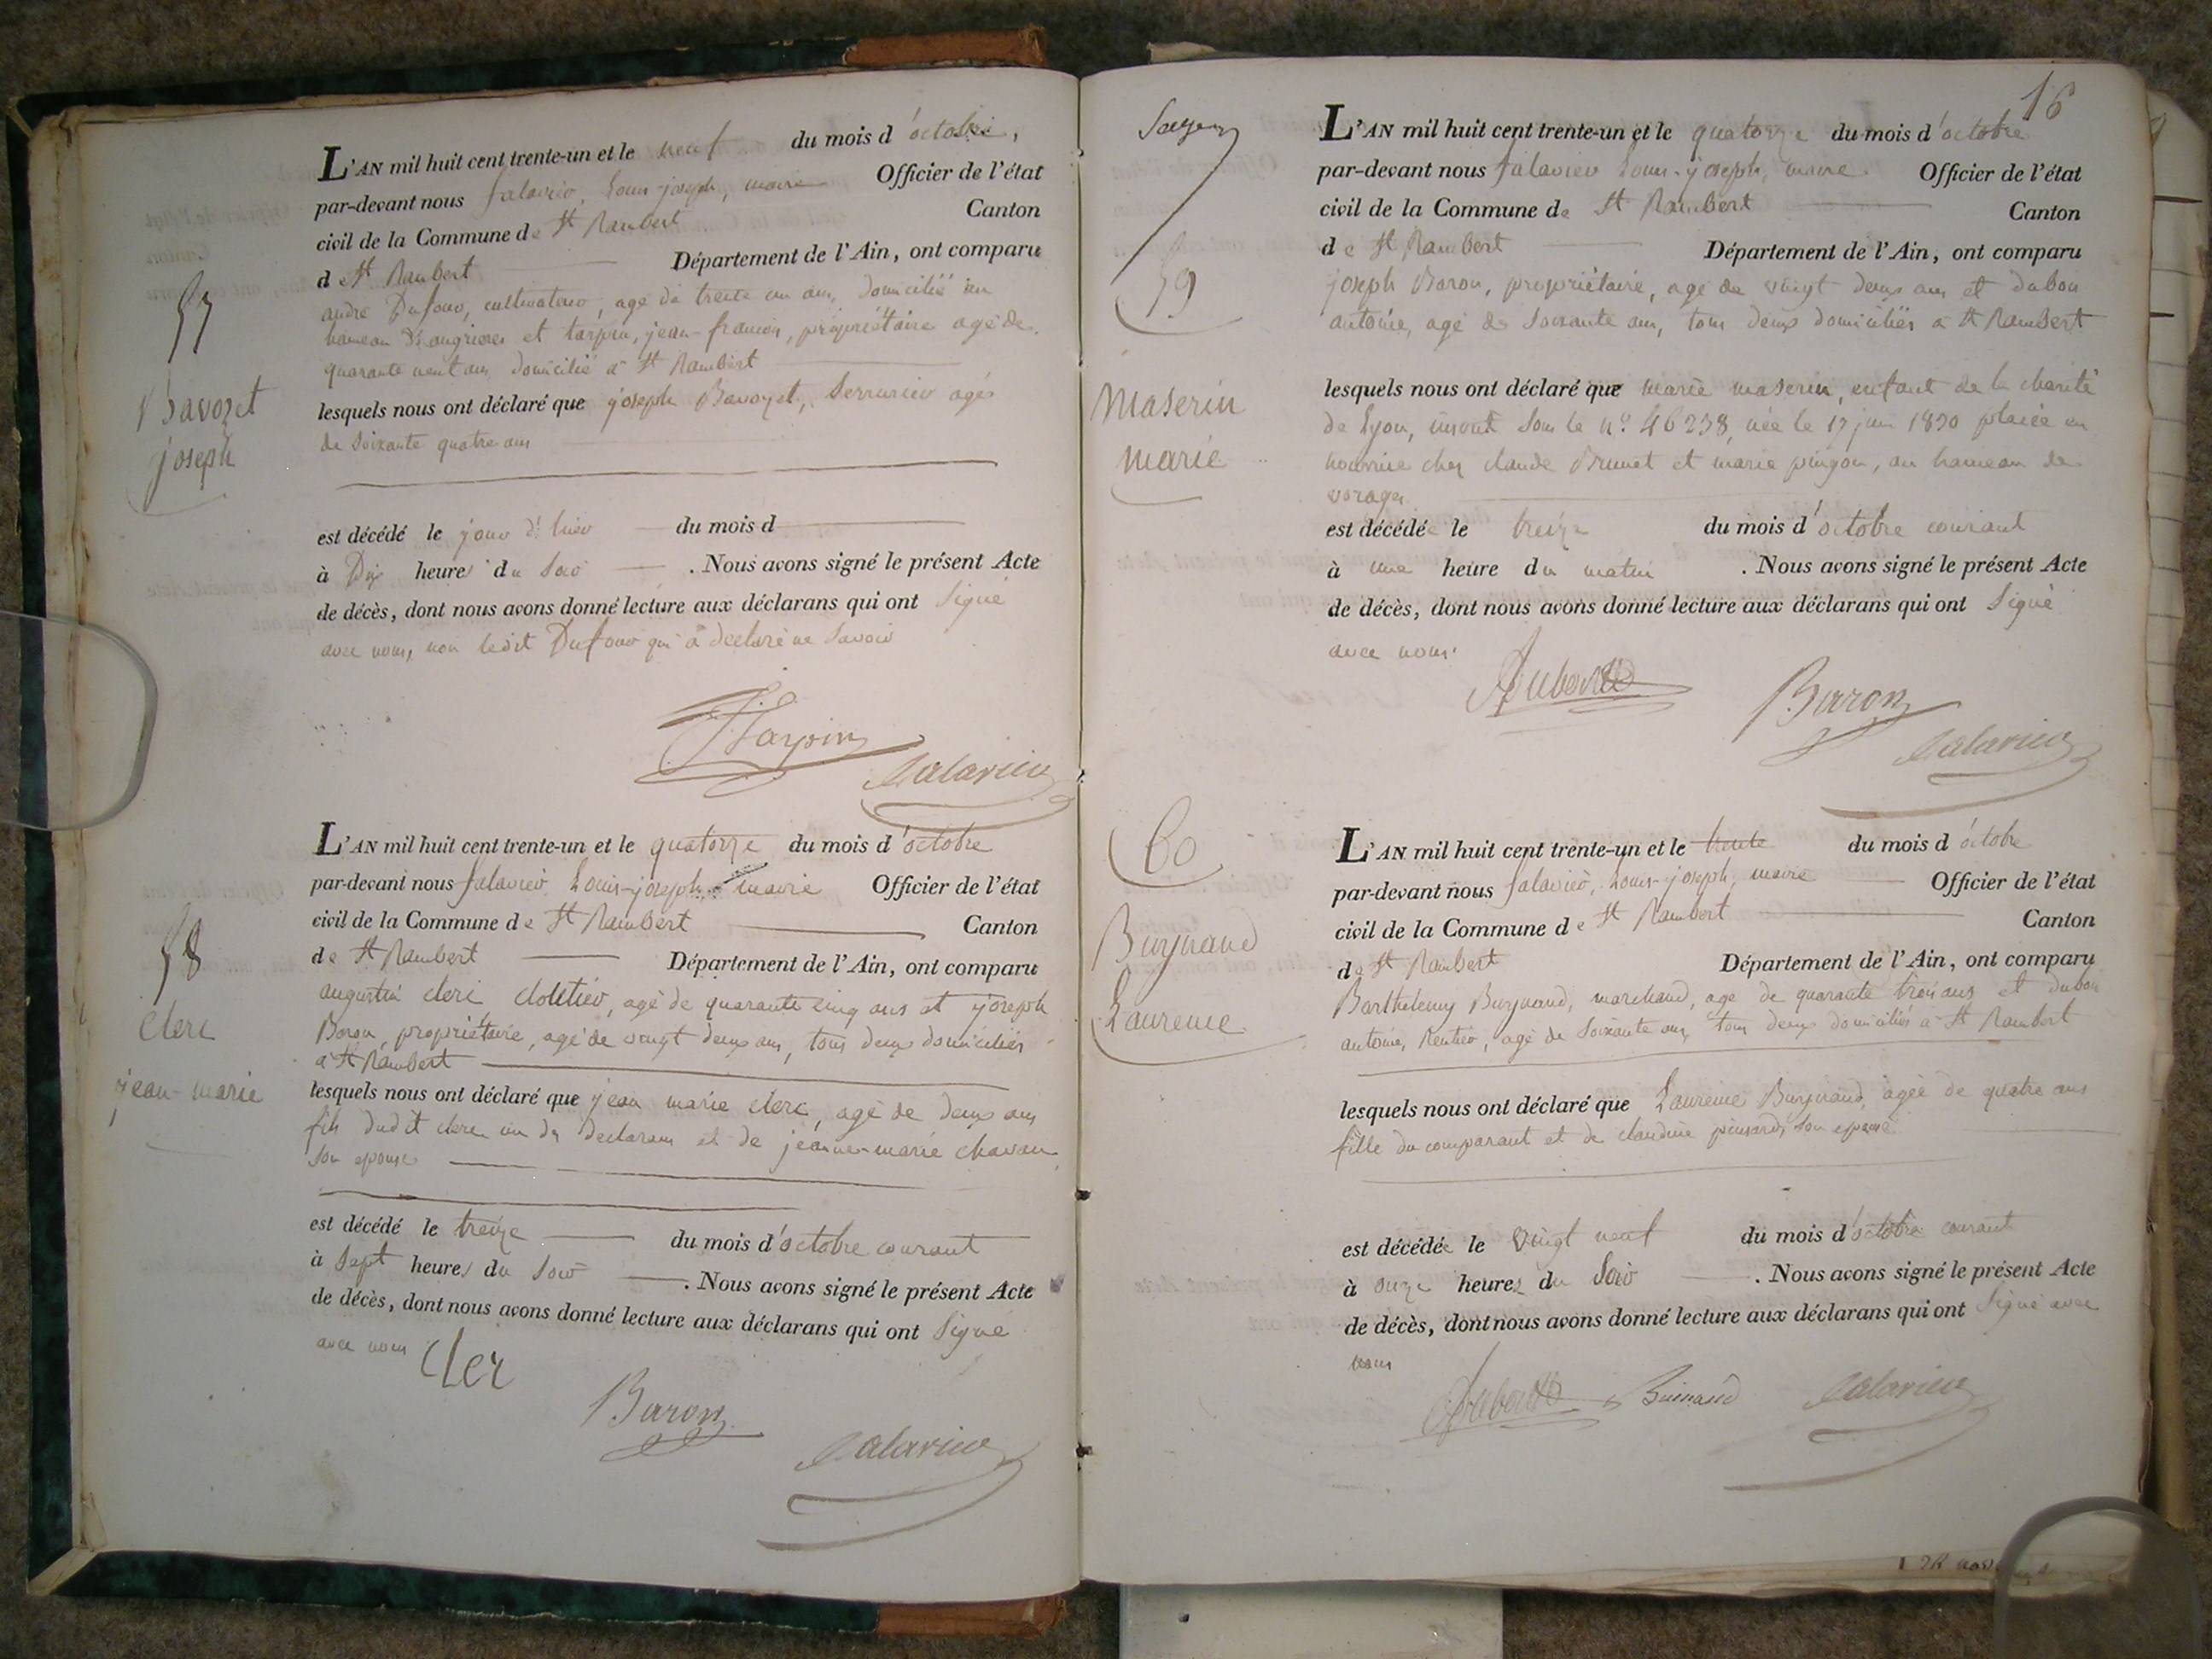 57
Bavozet
joseph
L'AN mil huit cent trente-un et le neuf du mois d'octobre,
par-devant nous falavier, Louis-joseph, maire Officier de l'état
civil de la Commune de St Rambert Canton
de St Rambert Département de l'Ain, ont comparu
andré Dufour, cultivateur, agé de trente un ans, domicilié au
hameau d'angrieres et tarpin, jean-francois, propriétaire agé de
quarante neuf ans domicilié à St Rambert
lesquels nous ont déclaré que joseph Bavozet, Serrurier agés
de soixante quatre ans
est décédé le jour d'hier du mois d
à Dix heures du soir . Nous avons signé le présent Acte
de décès, dont nous avons donné lecture aux déclarans qui ont signé
avec nous, non ledit Dufour qui a déclaré ne savoir
Tarpin
falavier
58
Clerc
jean-marie
L'AN mil huit cent trente-un et le quatorze du mois d'octobre
par-devant nous falavier Louis-joseph maire Officier de l'état
civil de la Commune de St Rambert Canton
de St Rambert Département de l'Ain, ont comparu
augustin clerc cloutier, agé de quarante cinq ans et joseph
Baron, propriétaire, agé de vingt deux ans, tous deux domiciliés
à St Rambert
lesquels nous ont déclaré que jean marie clerc, agé de deux ans
fils dudit clerc un des declarans et de jeanne-marie chavan
son epouse
est décédé le treize du mois d'octobre courant
à sept heures du soir . Nous avons signé le présent Acte
de décès, dont nous avons donné lecture aux déclarans qui ont signé
avec nous
Cler
Baron
falavier
16
59
Maserin
marie
L'AN mil huit cent trente-un et le quatorze du mois d'octobre
par-devant nous falavier Louis-joseph, maire Officier de l'état
civil de la Commune de St Rambert Canton
de St Rambert Département de l'Ain, ont comparu
joseph Baron, propriétaire, agé de vingt deux ans et dubou
antoine, agé de soixante ans, tous deux domiciliés à St Rambert
lesquels nous ont déclaré que marie maserin, enfant de la charité
de Lyon, inscrit sous le n° 46238, née le 17 juin 1830 placée en
nourrice chez claude Brunet et marie pingon, au hameau de
vorages
est décédée le treize du mois d'octobre courant
à une heure du matin . Nous avons signé le présent Acte
de décès, dont nous avons donné lecture aux déclarans qui ont signé
avec nous
Baron
falavier
60
Buynand
Laurence
L'AN mil huit cent trente-un et le trente du mois d'octobre
par-devant nous falavier, Louis-joseph, maire Officier de l'état
civil de la Commune de St Rambert Canton
de St Rambert Département de l'Ain, ont comparu
Barthelemy Buynand, marchand, agé de quarante trois ans et dubou
antoine, Rentier, agé de soixante ans, tous deux domiciliés à St Rambert
lesquels nous ont déclaré que Laurence Buynand, agée de quatre ans
fille du comparant et de claudine pensard, son epouse
est décédée le vingt neuf du mois d'octobre courant
à onze heures du soir . Nous avons signé le présent Acte
de décès, dont nous avons donné lecture aux déclarans qui ont signé avec
nous
Buinand
falavier